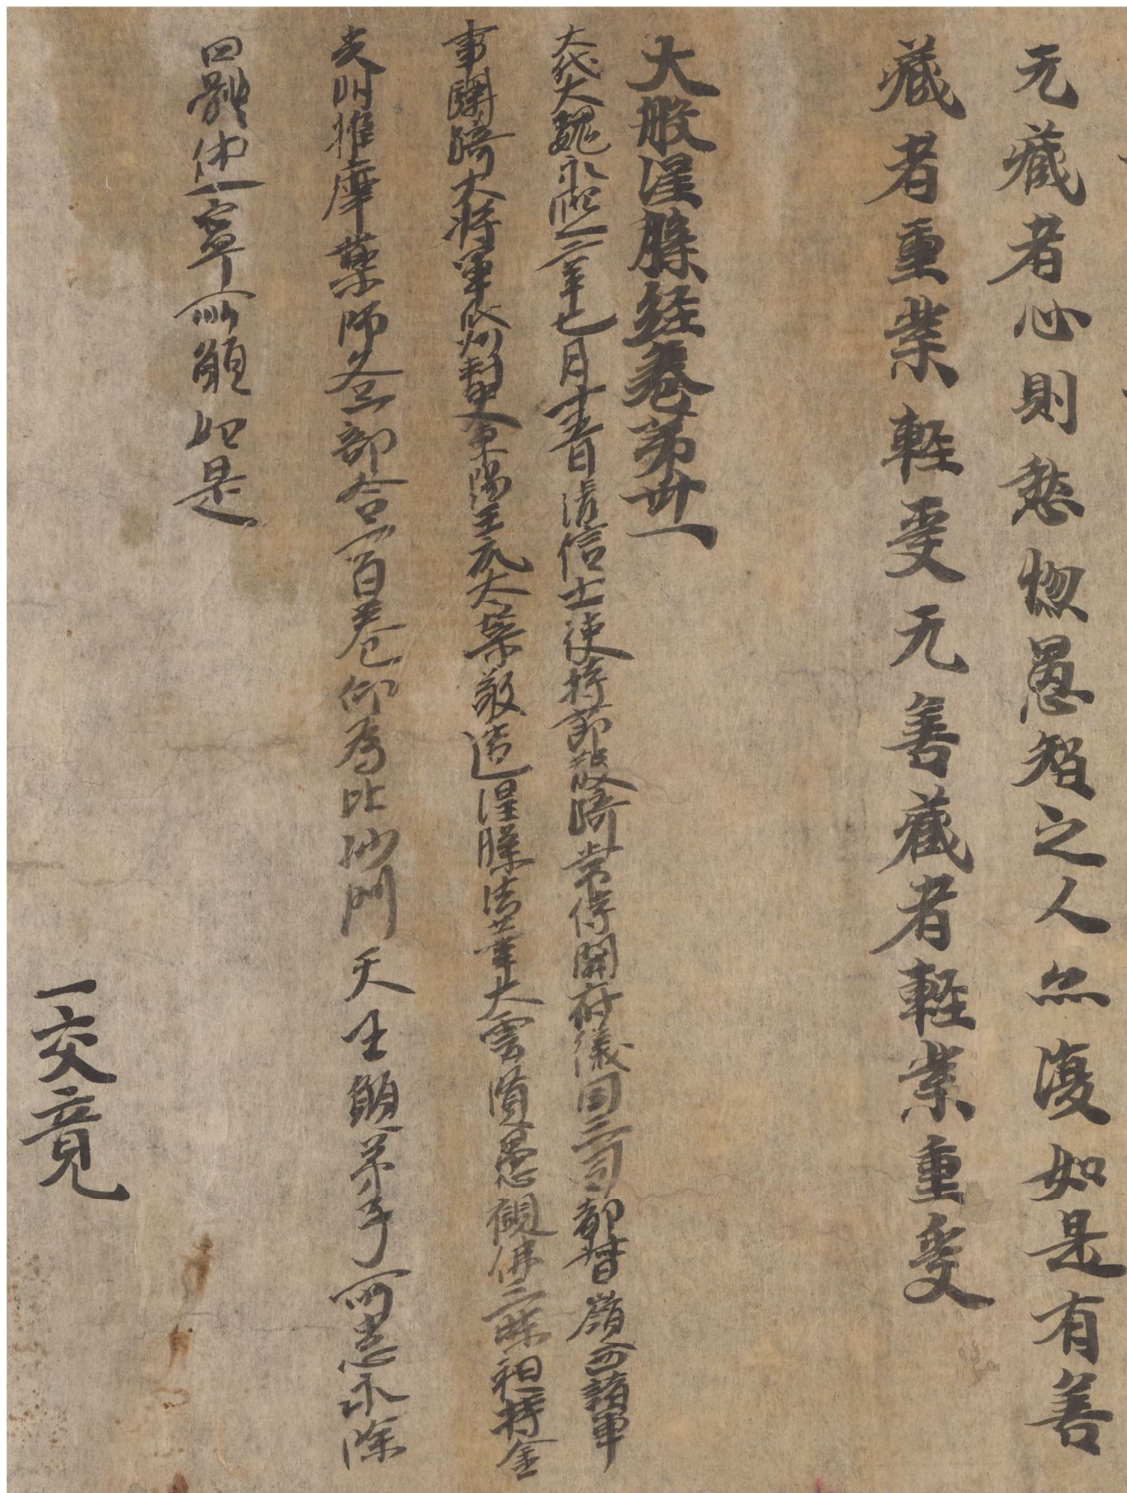 无藏者心則愁惚愚智之人亦復如是有善
藏者重業輕受无善藏者輕業重受
大般涅槃經卷第卅一
大代大魏永熙二年七月十五日清信士使持節散騎常侍開府儀同三司都督嶺西諸軍
事驃騎大將軍瓜州刺史東陽王元太榮敬造涅槃法華大雲賢愚觀佛三昧祖持金
光明維摩藥師各一部合一百卷仰為比沙門天王願弟子所患永除
四體休寧所願如是
一交竟